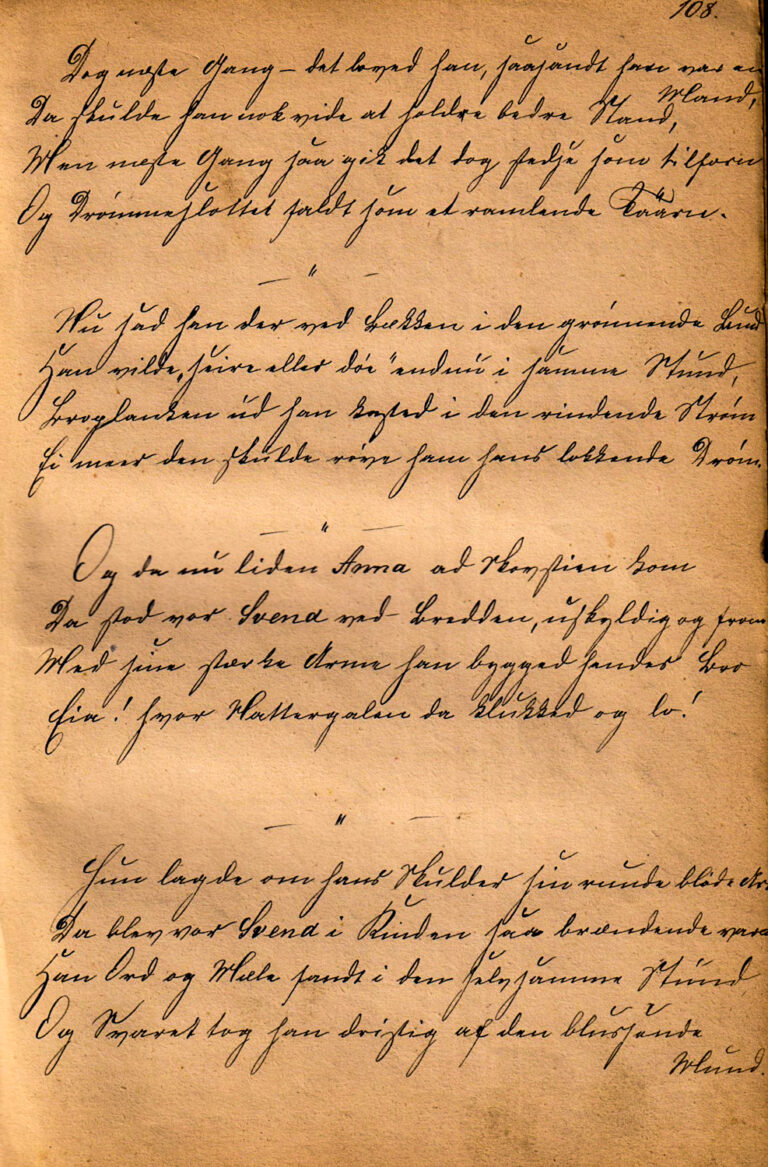 108.
Dog næste Gang – det loved han, saasandt han var en
Mand,
Da skulde han nok vide at holdre bedre Stand,
Men næste Gang saa gik det dog stedse som tilforn
Og Drømmeslottet faldt som et ramlende Taarn.
— " —
Nu sad han der ved Bækken i den grønnende Lund
Han vilde „seire eller døe" endnu i samme Stund,
Broplanken ud han kasted i den rindende Strøm
Ei meer den skulde røve ham hans lokkende Drøm.
— " —
Og da nu liden Anna ad Skovstien kom
Da stod vor Svend ved Bredden, uskyldig og from
Med sine stærke Arme han bygged hendes Bro
Eia! hvor Nattergalen da klukked og lo!
— " —
Hun lagde om hans Skulder sin runde bløde Ar
Da blev vor Svend i Kinden saa brændende var
Han Ord og Mæle fandt i den selvsamme Stund
Og Svaret tog han dristig af den blussende
Mund.